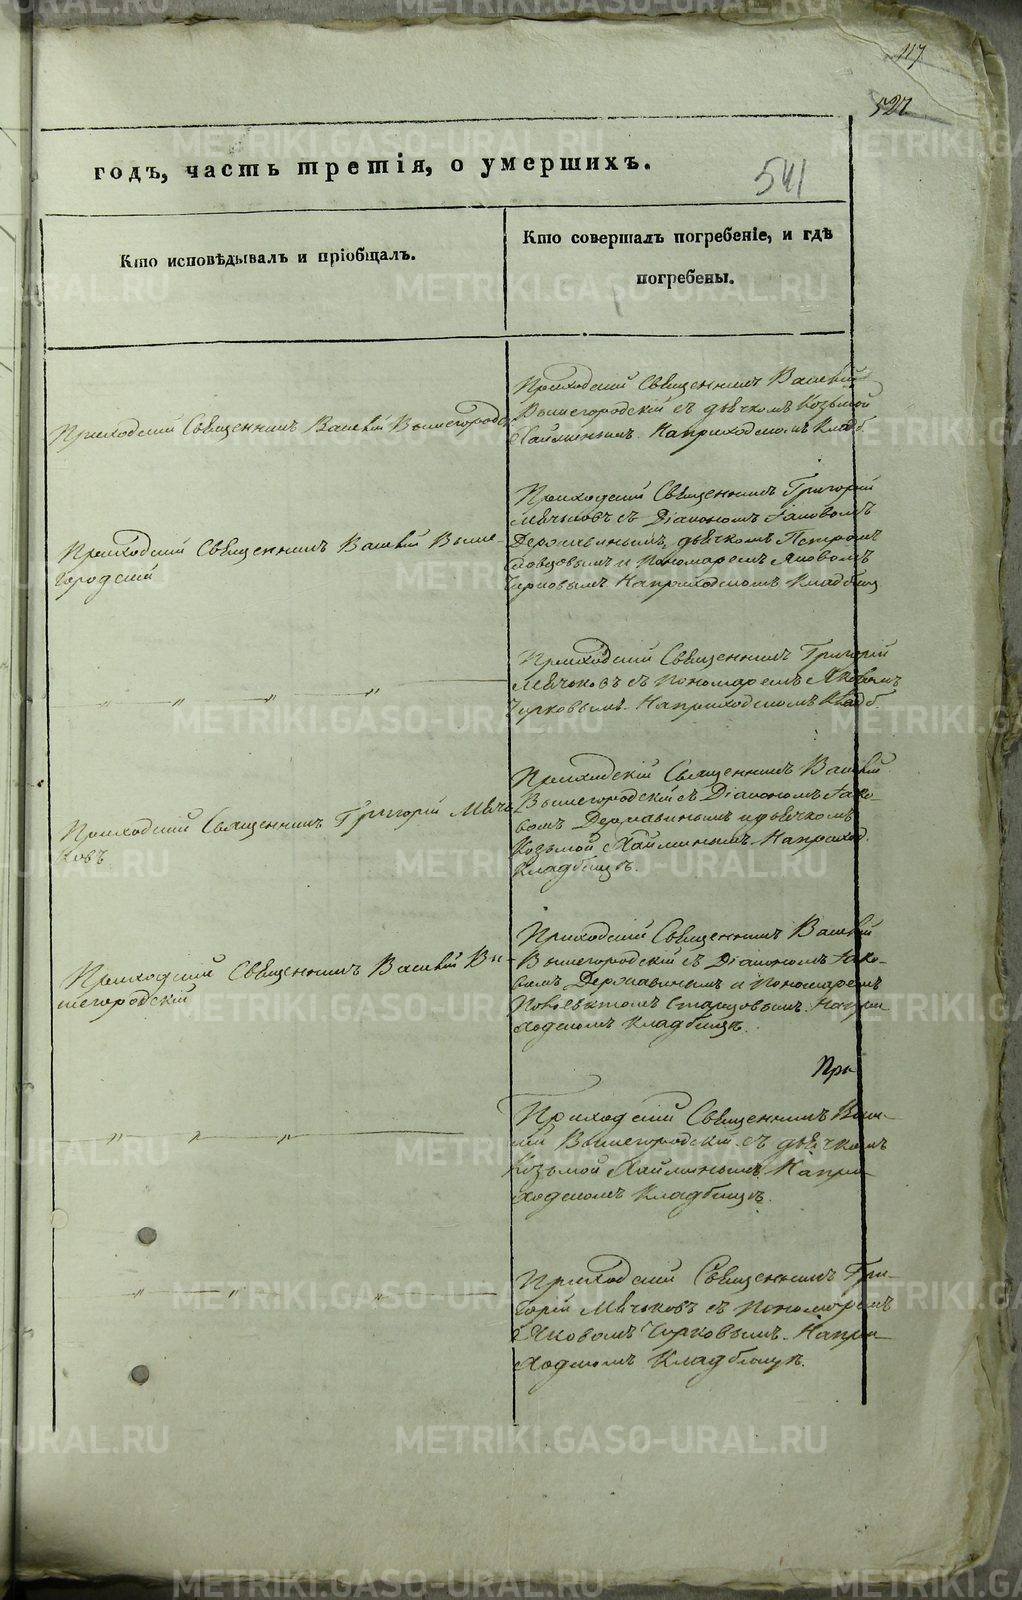 117
527
541
годъ, часть третія, о умершихъ.
Кто исповѣдывалъ и пріобщалъ.
Кто совершалъ погребеніе, и гдѣ
погребены.
Приходскій Священникъ Василій Вышегородскій
Приходскій Священникъ Василій
Вышегородскій съ дьячкомъ Козьмой
Хайминымъ. На приходскомъ Кладб.
Приходскій Священникъ Василій Выше-
городскій
Приходскій Священникъ Григорій
Мячковъ съ Діакономъ Іаковомъ
Державинымъ, дьячкомъ Петромъ
и Пономаремъ Яковомъ
Чирковымъ На приходскомъ Кладбищ
„ „ „ „
Приходскій Священникъ Григорій
Мячковъ съ Пономаремъ Яковомъ
Чирковымъ. На приходскомъ Кладб.
Приходскій Священникъ Григорій Мяч-
ковъ
Приходскій Священникъ Василій
Вышегородскій съ Діакономъ Іако-
вомъ Державинымъ и дьячкомъ
Козьмой Хайминымъ. На приход.
Кладбищѣ.
Приходскій Священникъ Василій Вы-
шегородскій
Приходскій Священникъ Василій
Вышегородскій съ Діакономъ Іако-
вомъ Державинымъ и Пономаремъ
Старцовымъ. На при-
ходскомъ Кладбищѣ.
При
„ „ „
Приходскій Священникъ Васи-
лій Вышегородскій съ дьячкомъ
Козьмой Хайминымъ. На при-
ходскомъ Кладбищѣ.
„ „ „
Приходскій Священникъ Гри-
горій Мячковъ съ Пономаремъ
Яковомъ Чирковымъ. На при-
ходскомъ Кладбищѣ.
METRIKI.GASO-URAL.RU